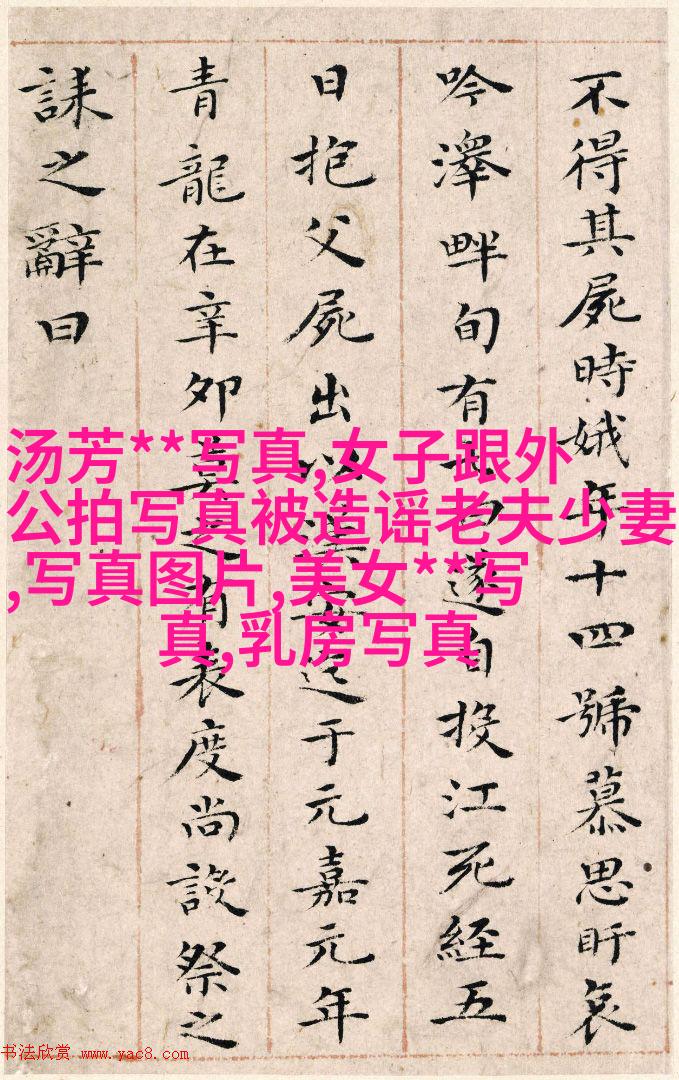 不得其屍時娥年十四號慕思盱哀
吟澤畔旬有七日遂自投江死經五
日抱父屍出以漢安迄于元嘉元年
青龍在辛卯莫之有表度尚設祭之
誄之辭曰
汤芳**写真,女子跟外
公拍写真被造谣老夫少妻
,写真图片,美女**写
真,乳房写真
书法欣赏 www.yac8.com